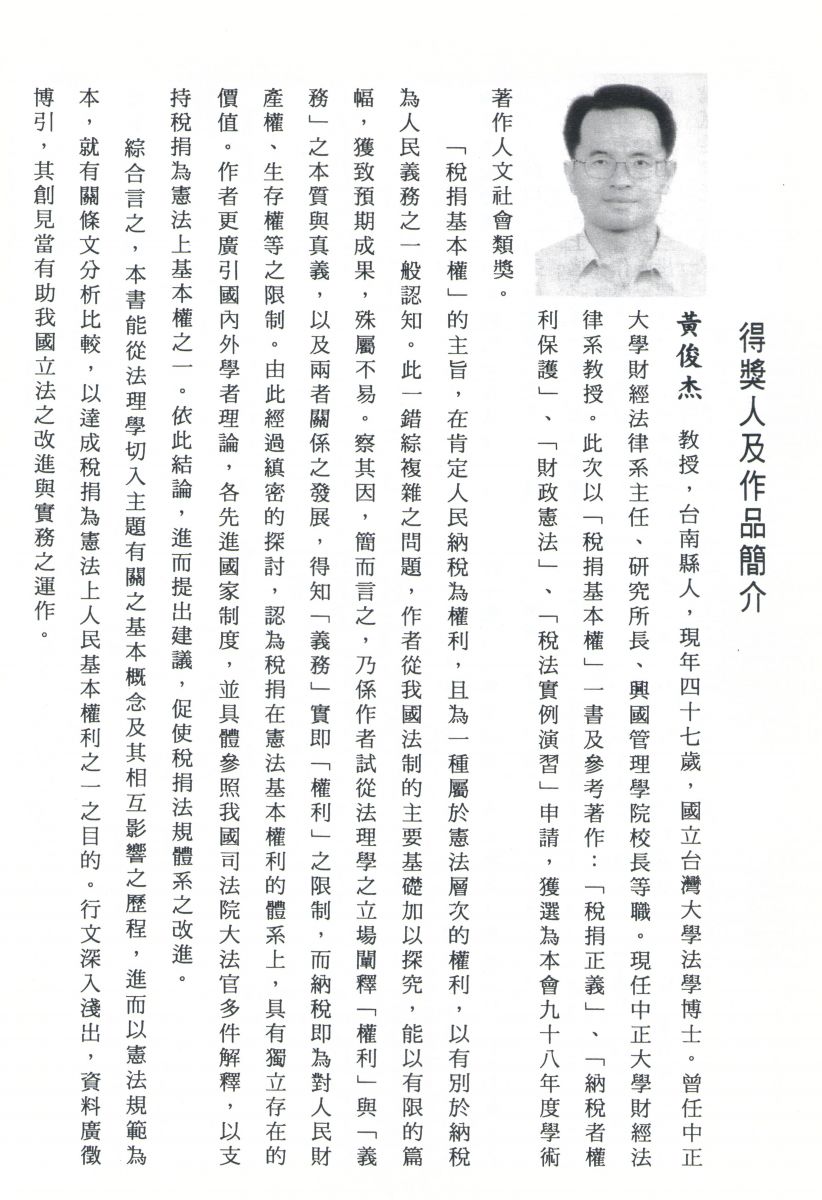 得獎人及作品簡介
黃俊杰　教授，台南縣人，現年四十七歲，國立台灣大學法學博士。曾任中正
大學財經法律系主任、研究所長、興國管理學院校長等職。現任中正大學財經法
律系教授。此次以「稅捐基本權」一書及參考著作：「稅捐正義」、「納稅者權
利保護」、「財政憲法」、「稅法實例演習」申請，獲選為本會九十八年度學術
著作人文社會類獎。
「稅捐基本權」的主旨，在肯定人民納稅為權利，且為一種屬於憲法層次的權利，以有別於納稅
為人民義務之一般認知。此一錯綜複雜之問題，作者從我國法制的主要基礎加以探究，能以有限的篇
幅，獲致預期成果，殊屬不易。察其因，簡而言之，乃係作者試從法理學之立場闡釋「權利」與「義
務」之本質與真義，以及兩者關係之發展，得知「義務」實即「權利」之限制，而納稅即為對人民財
產權、生存權等之限制。由此經過縝密的探討，認為稅捐在憲法基本權利的體系上，具有獨立存在的
價值。作者更廣引國內外學者理論，各先進國家制度，並具體參照我國司法院大法官多件解釋，以支
持稅捐為憲法上基本權之一。依此結論，進而提出建議，促使稅捐法規體系之改進。
綜合言之，本書能從法理學切入主題有關之基本概念及其相互影響之歷程，進而以憲法規範為
本，就有關條文分析比較，以達成稅捐為憲法上人民基本權利之一之目的。行文深入淺出，資料廣徵
博引，其創見當有助我國立法之改進與實務之運作。